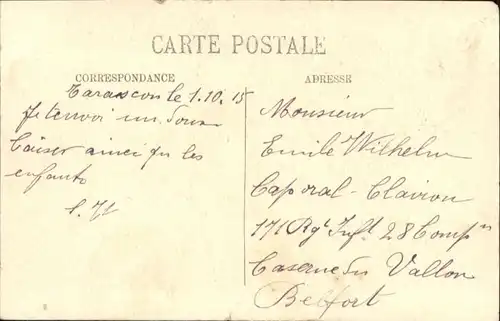 CARTE POSTALE
CORRESPONDANCE
Tarascon le 1.10.15
Je tenvoi un doux
baiser ainci que les
enfants
ADRESSE
Monsieur
Emile Wilhelm
Caporal-Clairon
171 Rgt Inft 28 Compn
Caserne du Vallon
Belfort